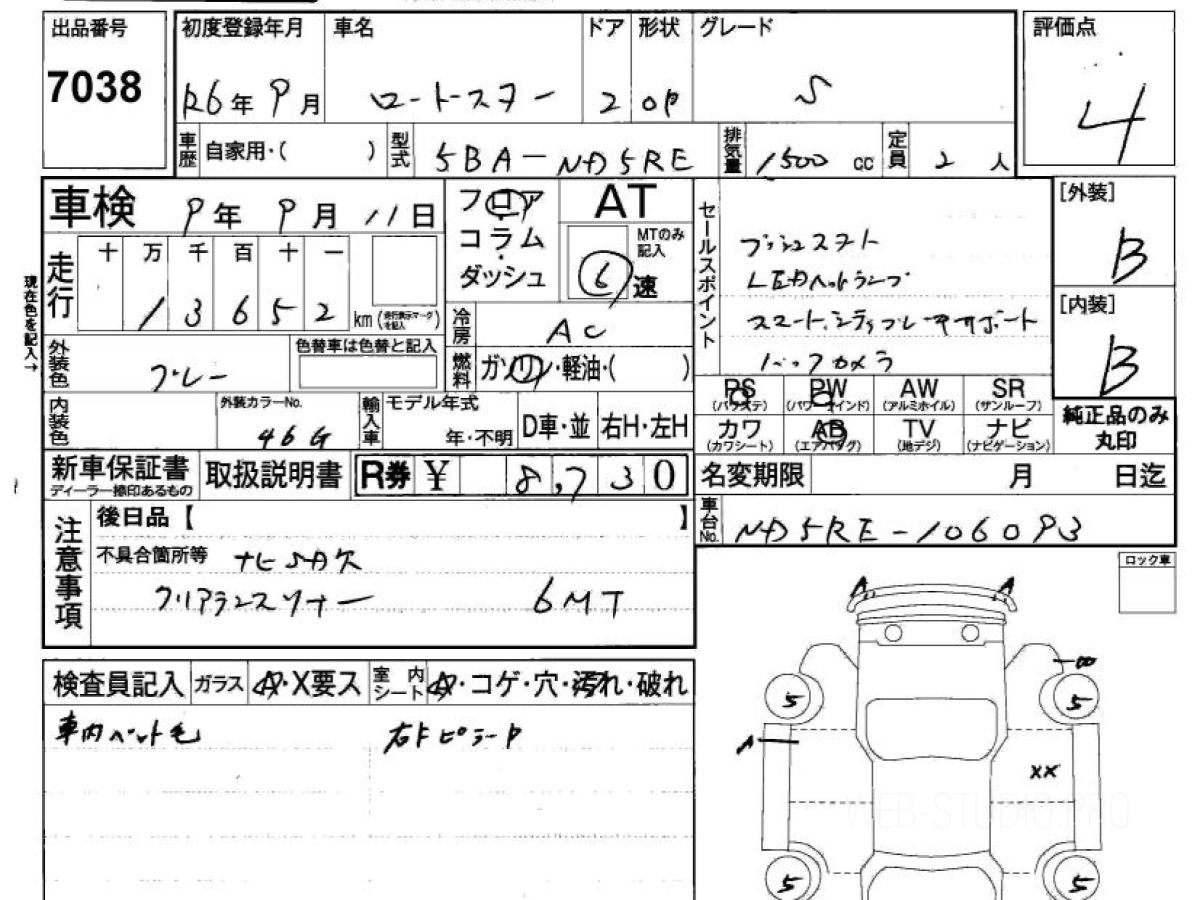 出品番号 初度登録年月 車名 ドア 形状 グレード 評価点
7038 R6年 9月 ロードスター 2 OP S 4
車歴 自家用・( ) 型式 5BA-ND5RE 排気量 1500 cc 定員 2 人
車検 9年 9月 11日 フロア AT セールスポイント [外装]
コラム MTのみ記入
ダッシュ 6 速 B
プッシュスタート
LEDヘッドランプ
スマート.シティブレーキサポート
バックカメラ
現在色を記入→
走行 十 万 千 百 十 一
1 3 6 5 2 km (走行表示マークを記入)
冷房 AC [内装]
B
外装色 グレー 色替車は色替と記入 燃料 ガソリン・軽油・( )
PS (パワステ) PW (パワーウインド) AW (アルミホイル) SR (サンルーフ)
内装色 外装カラーNo. 46G 輸入車 モデル年式 年・不明 D車・並 右H・左H
カワ (カワシート) AB (エアバッグ) TV (地デジ) ナビ (ナビゲーション) 純正品のみ丸印
新車保証書 ディーラー捺印あるもの 取扱説明書 R券 ¥ 8,730 名変期限 月 日迄
注意事項 後日品【 】 車台No. ND5RE-106093
不具合箇所等 ナビSD欠
クリアランスソナー 6MT
ロック車
A A
検査員記入 ガラス A・X要ス 室内シート A・コゲ・穴・汚れ・破れ
車内ペット毛 右Fピラー
5 5
A
XX
WEB-STUDIO.PRO
5 5